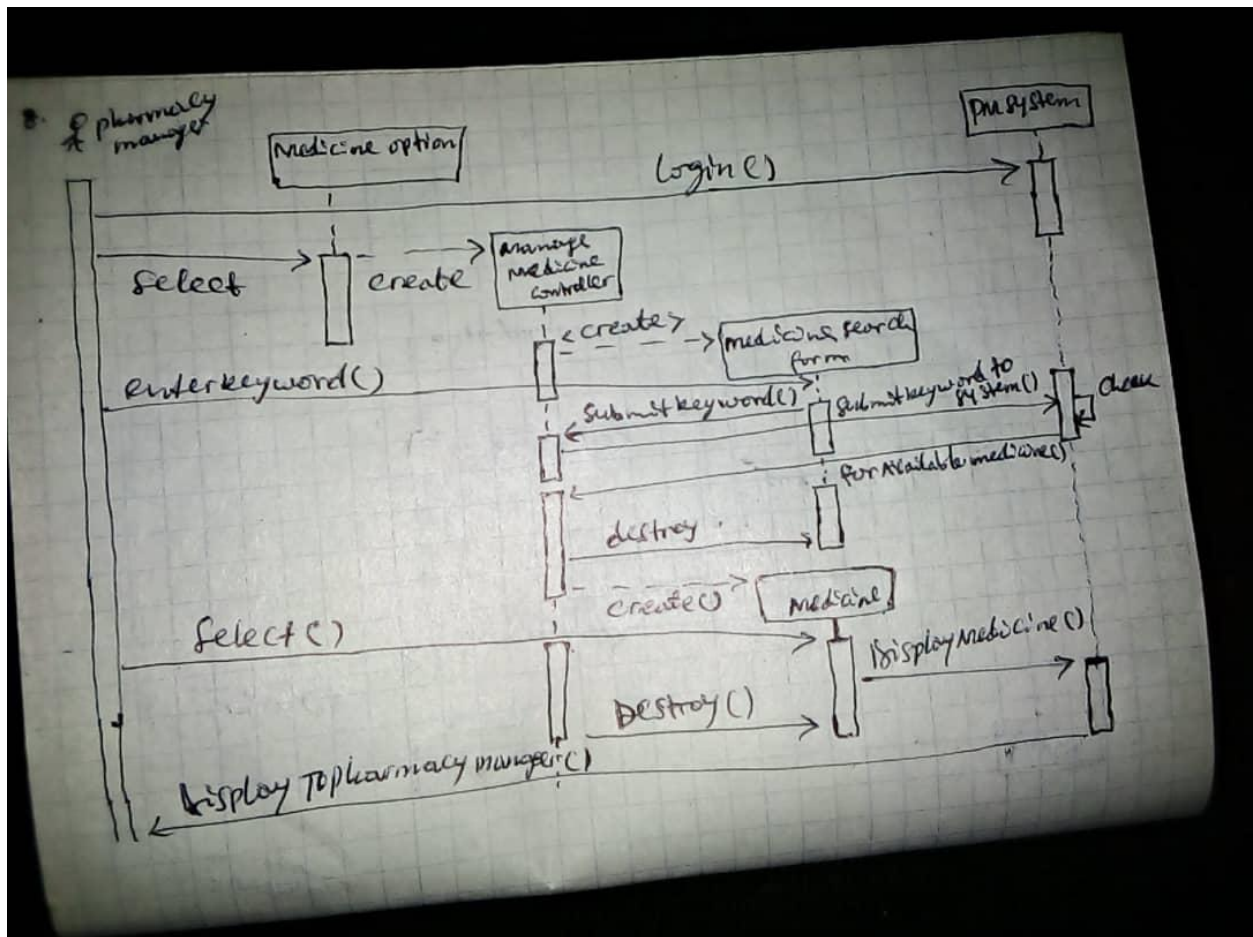 8.
pharmacy
manager
Medicine option
PM system
Login()
Select
create
Manage
Medicine
Controller
<create>
Medicine search
form
enterkeyword()
Submitkeyword()
Submitkeyword to
system()
for Available medicine()
destroy
create()
Medicine
Select()
Display Medicine()
Destroy()
Display To pharmacy manager()